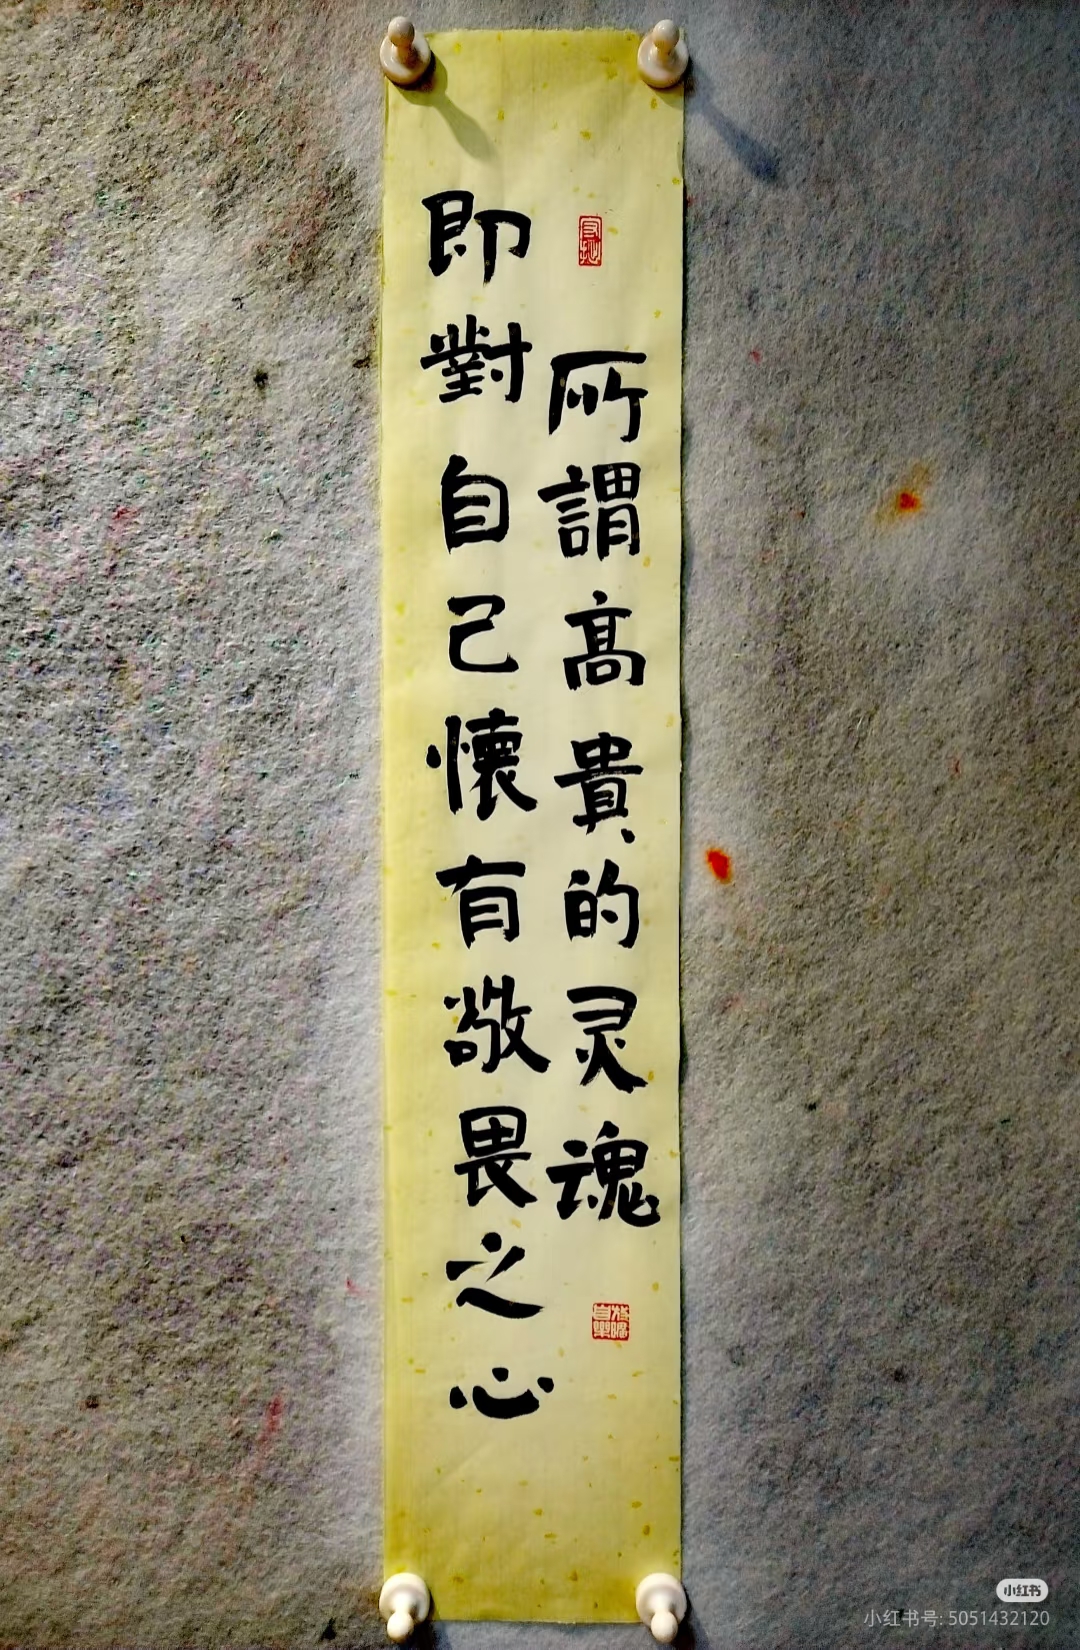 所謂高貴的灵魂
即對自己懷有敬畏之心
小红书
小红书号: 5051432120